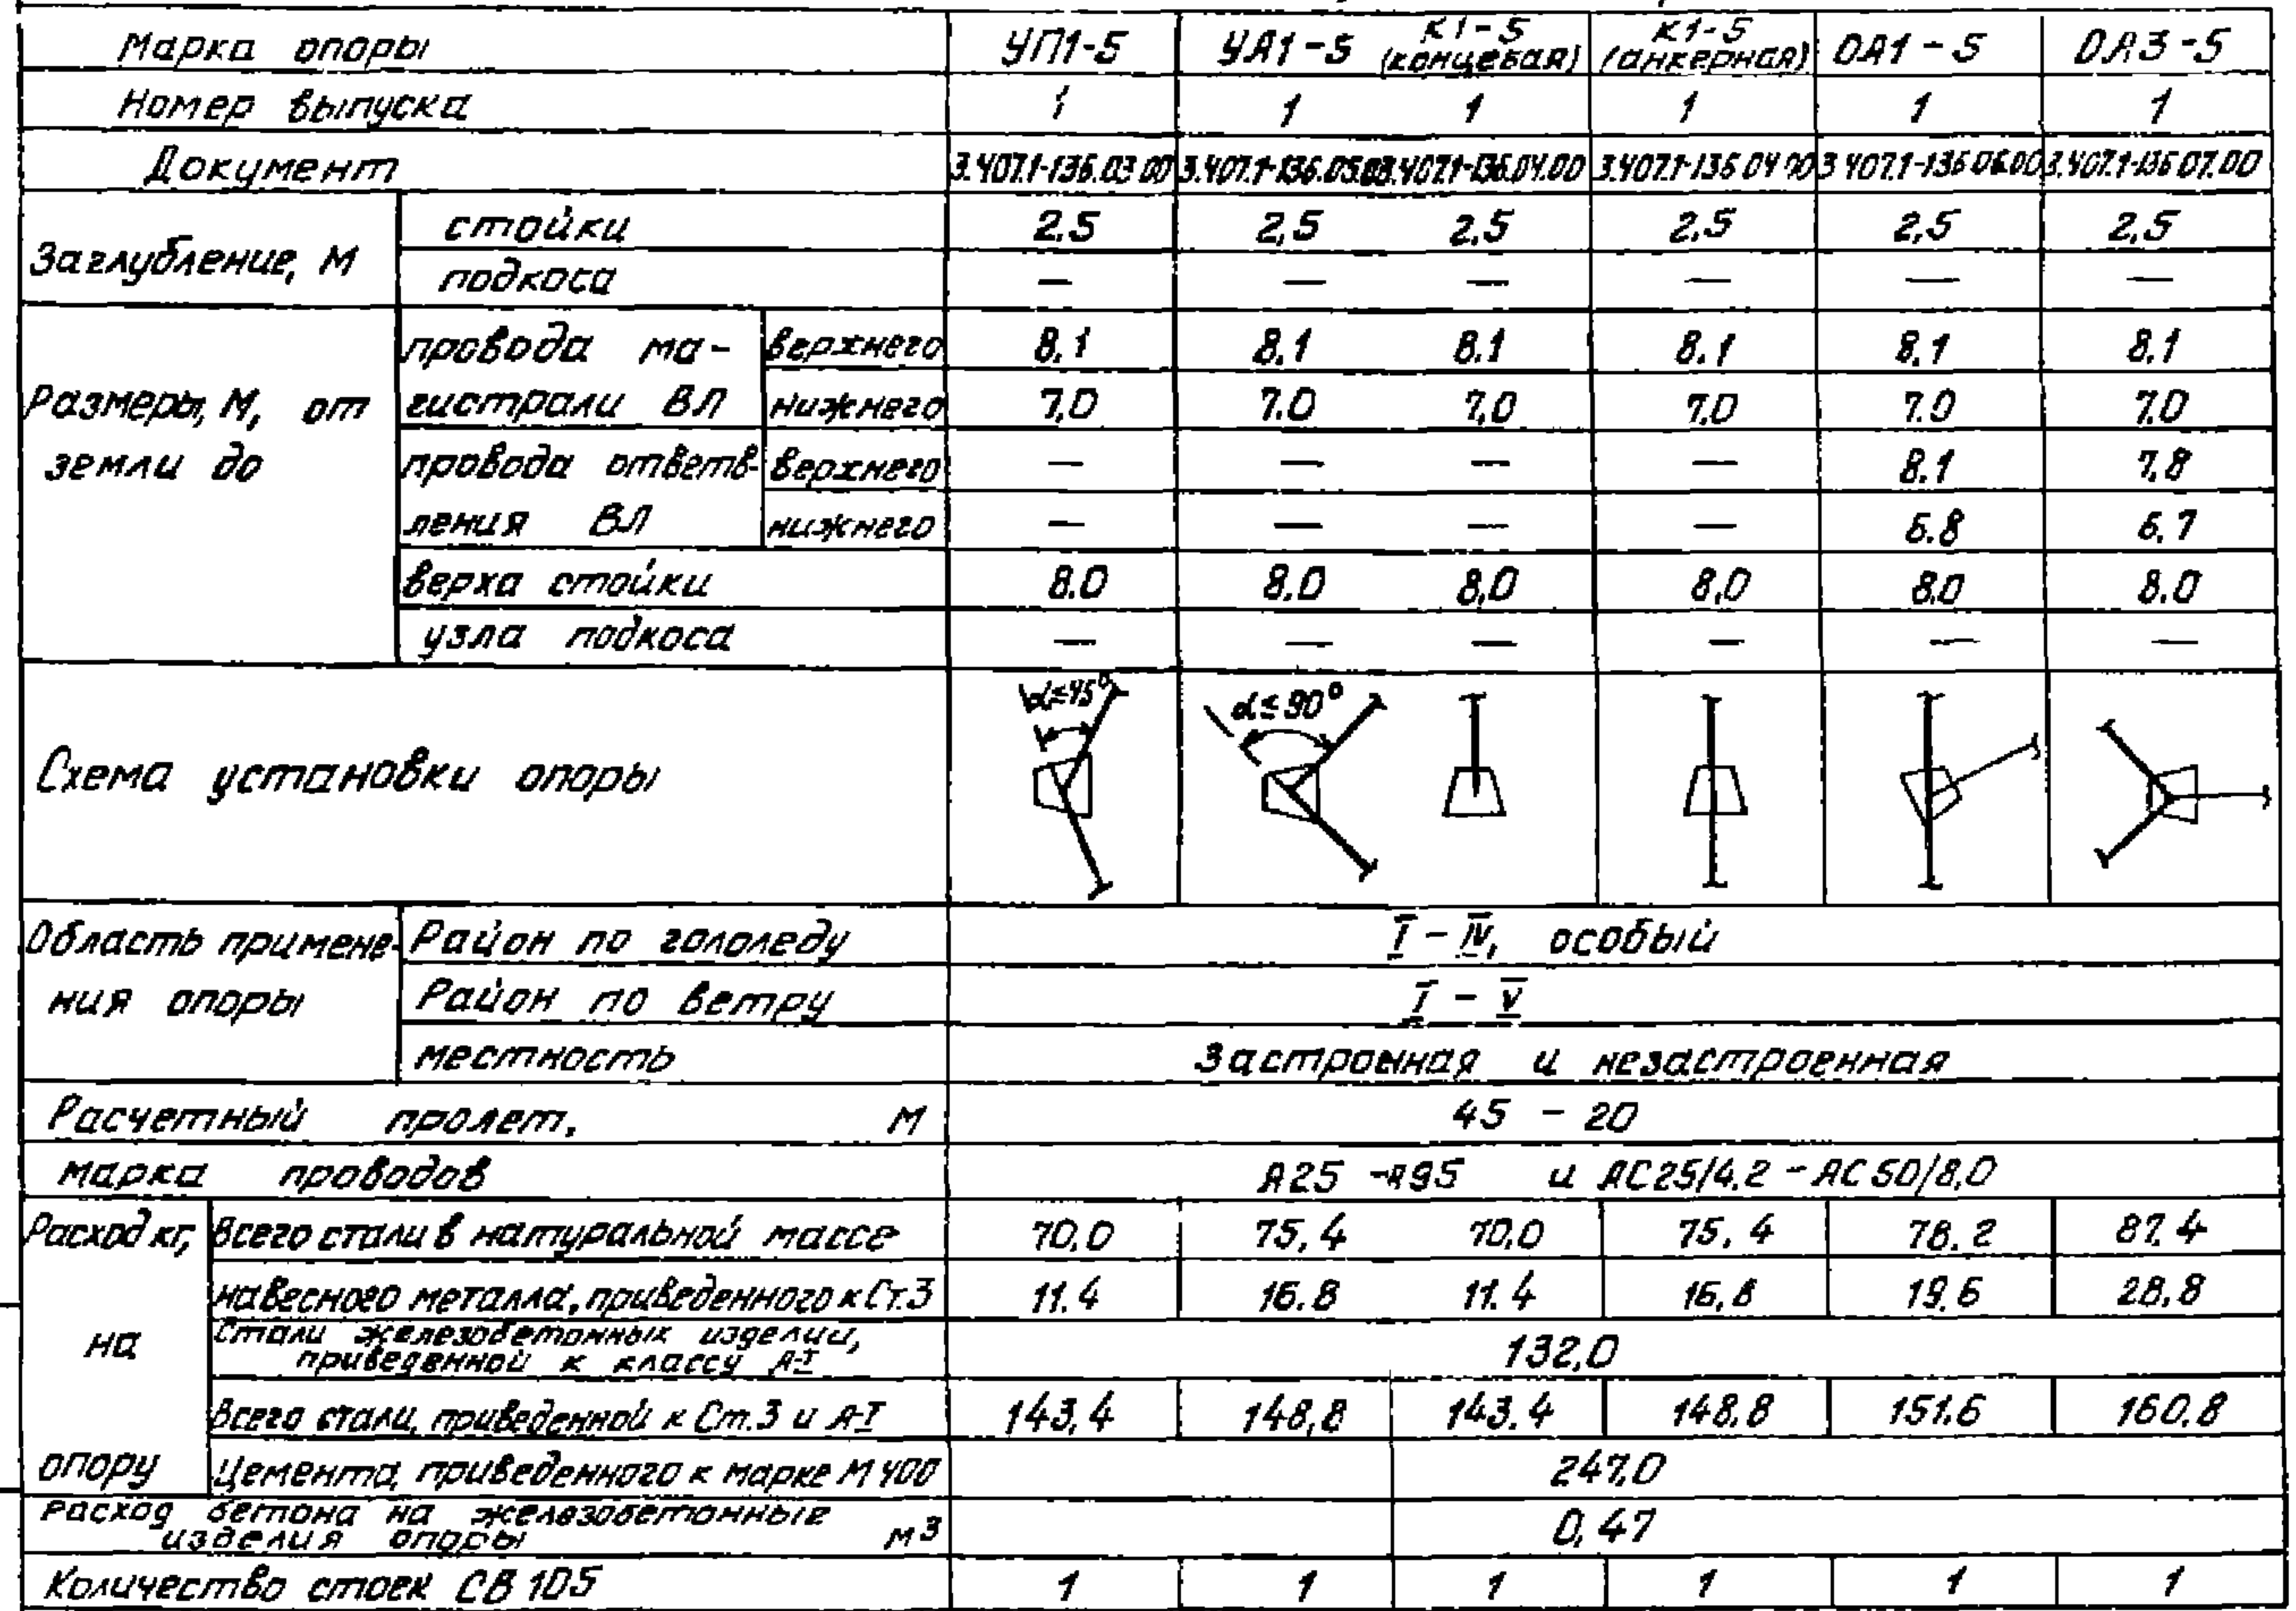 Марка опоры УП1-5 УА1-5 К1-5 (концевая) К1-5 (анкерная) ОА1-5 ОА3-5
Номер выпуска 1 1 1 1 1 1
Документ 3.407.1-136.03.00 3.407.1-136.05.00 3.407.1-136.04.00 3.407.1-136 04 00 3 407.1-136 06.00 3.407.1-136 07.00
Заглубление, м стойки 2,5 2,5 2,5 2,5 2,5 2,5
подкоса — — — — — —
Размеры, м, от земли до провода магистрали ВЛ верхнего 8.1 8.1 8.1 8.1 8.1 8.1
нижнего 7,0 7.0 7,0 7.0 7.0 7.0
провода ответвления ВЛ верхнего — — — — 8.1 7,8
нижнего — — — — 6.8 6.7
верха стойки 8.0 8.0 8,0 8,0 8.0 8.0
узла подкоса — — — — — —
Схема установки опоры α≤45° α≤90°
Область применения опоры Район по гололеду I - IV, особый
Район по ветру I - V
местность Застроенная и незастроенная
Расчетный пролет, м 45 - 20
марка проводов А25 -А95 и АС25/4.2 - АС50/8,0
Расход кг, на опору Всего стали в натуральной массе 70,0 75,4 70,0 75,4 78.2 87.4
навесного металла, приведенного к Ст.3 11.4 16.8 11.4 16,8 19,6 28,8
Стали железобетонных изделий, приведенной к классу А-I 132,0
Всего стали, приведенной к Ст.3 и А-I 143,4 148,8 143.4 148.8 151.6 160.8
Цемента, приведенного к марке М 400 247,0
Расход бетона на железобетонные изделия опоры м3 0,47
Количество стоек СВ 105 1 1 1 1 1 1